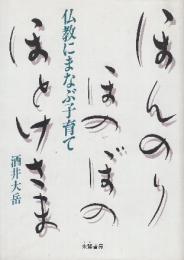 ほんのり
ほのぼの
ほとけさま
仏教にまなぶ子育て
酒井大岳